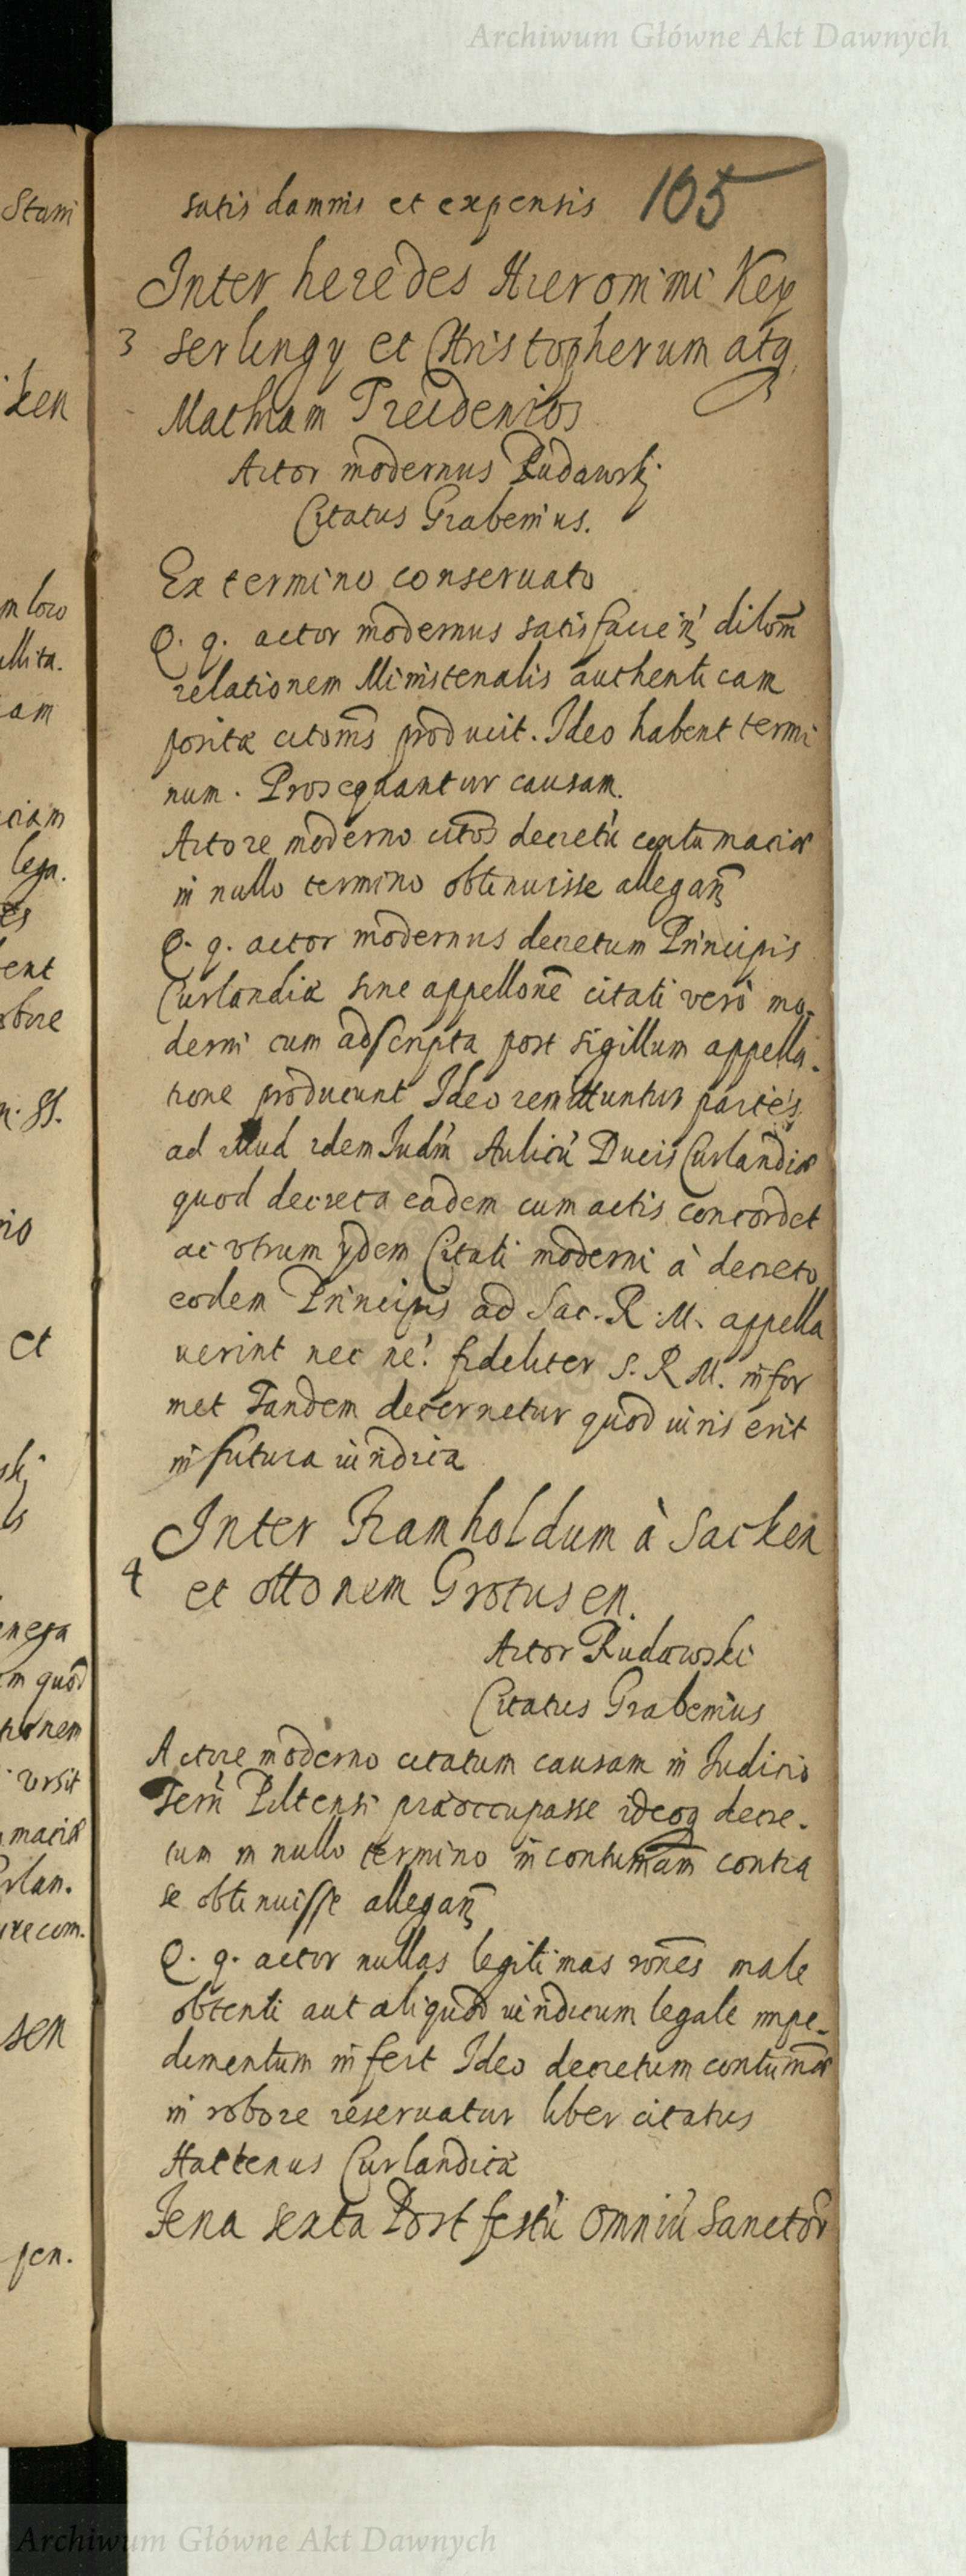 Archiwum Główne Akt Dawnych
satis damnis et expensis 105
Inter heredes Hieronimi Key
3 serlingy et Christopherum atq
Mathiam Treidenios
Actor modernus Rudawskj
Citatus Grabenius.
Ex termino conseruato
Q. q. actor modernus satisfacień dilom̃
relationem Ministerialis authenticam
positæ citom̃s producit. Ideo habent termi
num. Prosequantur causam.
Actore moderno citos decretú contumaciæ
in nullo termino obtinuisse allegan̄
Q. q. actor modernus decretum Principis
Curlandiæ sine appellonē citati verò mo-
derni cum adscripta post sigillum appella-
tione producunt Ideo remittuntur partes
ad illud idem Iudm̃ Aulicú Ducis Curlandiæ
quod decreta eadem cum actis concordet
ac vtrum ÿdem Citati moderni à decreto
eodem Principis ad Sac. R. M. appella
uerint nec ne! fideliter S. R. M. infor
met Tandem decernetur quod iuris erit
in futura iuridica
Inter Ramholdum à Sacken
4 et ottonem Grotusen.
Actor Rudawski
Citatus Grabenius
Actore moderno citatum causam in Iudicio
Terŕi Piltensi præoccupasse ideoq decre-
tum in nullo termino in contumam̃ contra
se obtinuisse allegan̄
Q. q. actor nullas legitimas ron̄es male
obtenti aut aliquod iuridicum legale impe-
dimentum infert Ideo decretum contumaæ
in robore reseruatur liber citatus
Hactenus Curlandica
Feria sexta Post festú Omniú Sanctor̃
Stani
ken
m loco
ullita.
iam
ciam
lega.
es
ent
obore
n. SS.
rio
et
skj
ls
enega
m quod
tionem
vrsit
maciæ
rlan.
ure com.
sen
pen.
Archiwum Główne Akt Dawnych